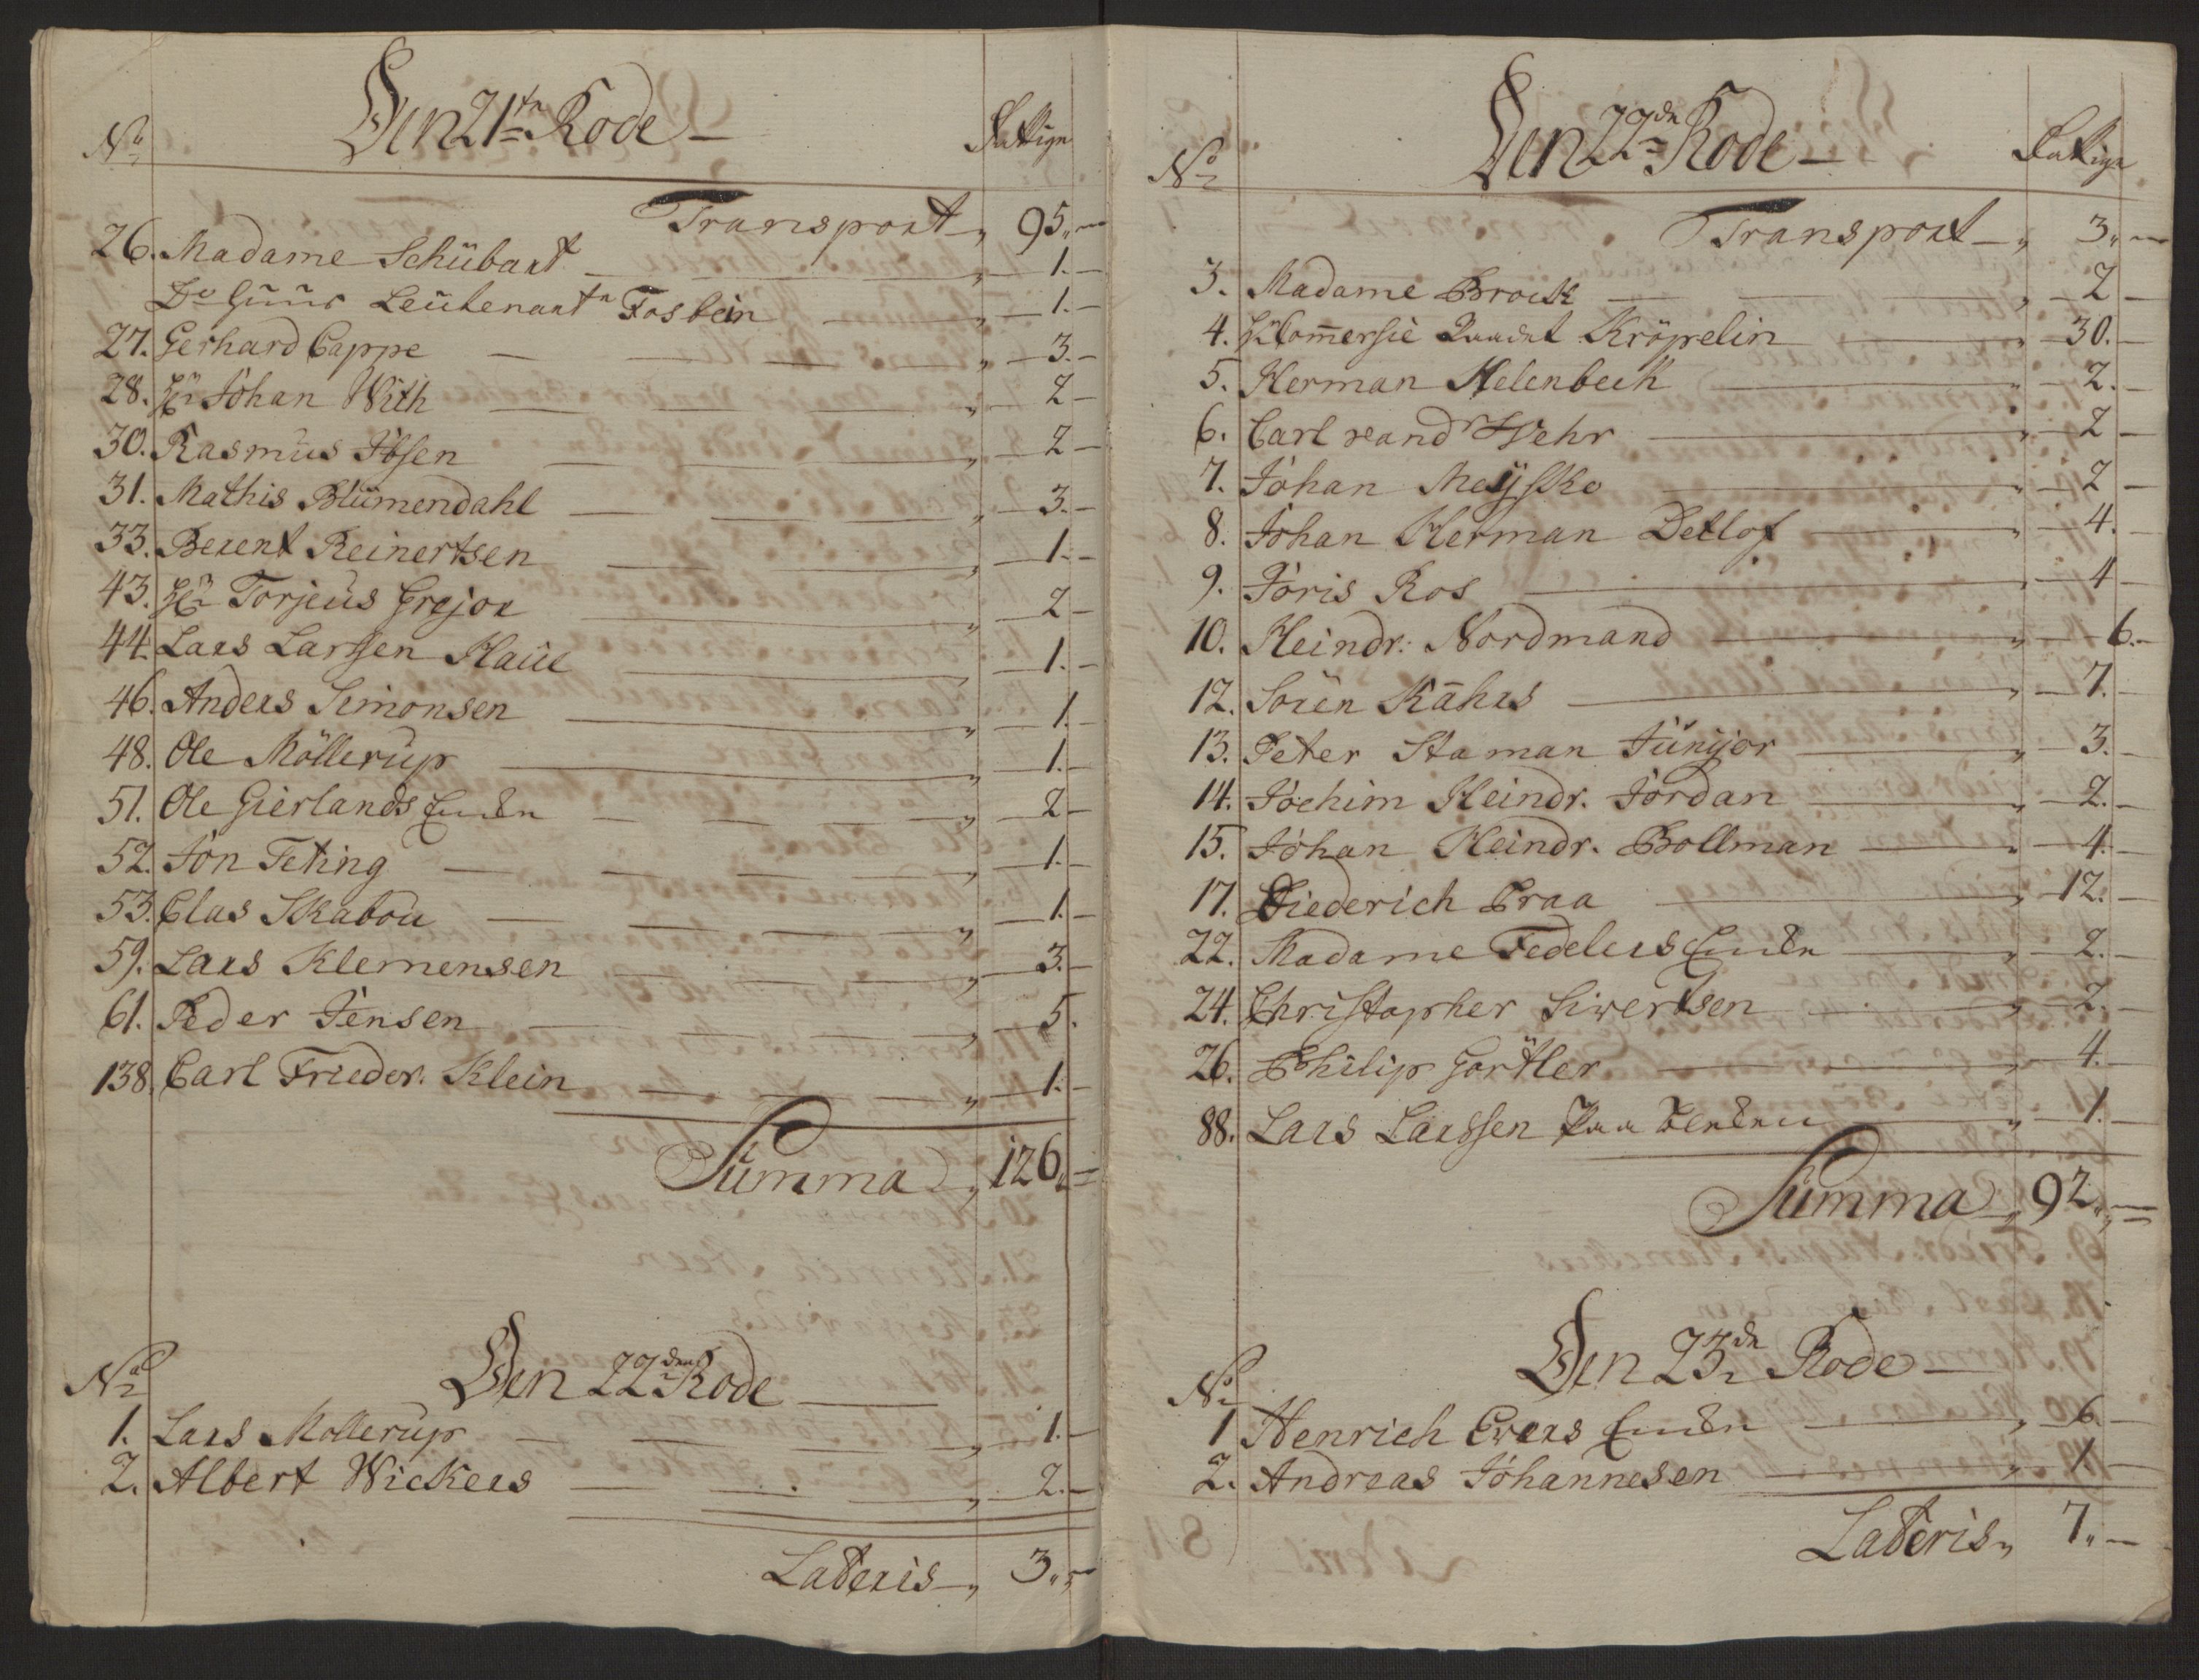 Den 21te Rode
No
Fattige
Transport 95
26. Madame Schübart 1.
Do Huus Leutenant Fosbein 1.
27. Gerhard Cappe 3.
28. Hr Johan With 2
30. Rasmus Ibsen 2
31. Mathis Blümendahl 3.
33. Berent Reinertsen 1.
43. Hr Torjeüs Grejor 2
44. Lars Larssen Haüe 1.
46. Anders Simonsen 1.
48. Ole Möllerüp 1.
51. Ole Gierlands Encke 2
52. Jon Teting 1.
53. Clas Skaboü 1.
59. Lars Klemensen 3.
61. Peder Jensen 5.
138. Carl Frieder. Klein 1.
Summa 126
No
Den 22den Rode
1. Lars Mollerup 1.
2. Albert Wickers 2.
Lateris 3
Den 22de Rode
No
Fattige
Transport 3
3. Madame Brock 2
4. Hr Commersie Raadt Kröpelin 30.
5. Herman Helenbech 2.
6. Carl von der Wehr 2
7. Johan Meyske 2
8. Johan Herman Detlof 4.
9. Joris Ros 4
10. Heindr: Nordmand 6.
12. Sören Kāhrs 7.
13. Peter Staman Jünijor 3.
14. Jochim Heindr. Jordan 2.
15. Johan Heindr. Bollman 4.
17. Diederich Praa 12.
22. Madame Fedelers Encke 2.
24. Christopher Siwertsen 2.
26. Philip Görtler 4.
88. Lars Larssen Paa 1.
Summa 92
Den 23de Rode
No
1 Henrich Evers Encke 6.
2. Andreas Johannesen 1
Lateris 7